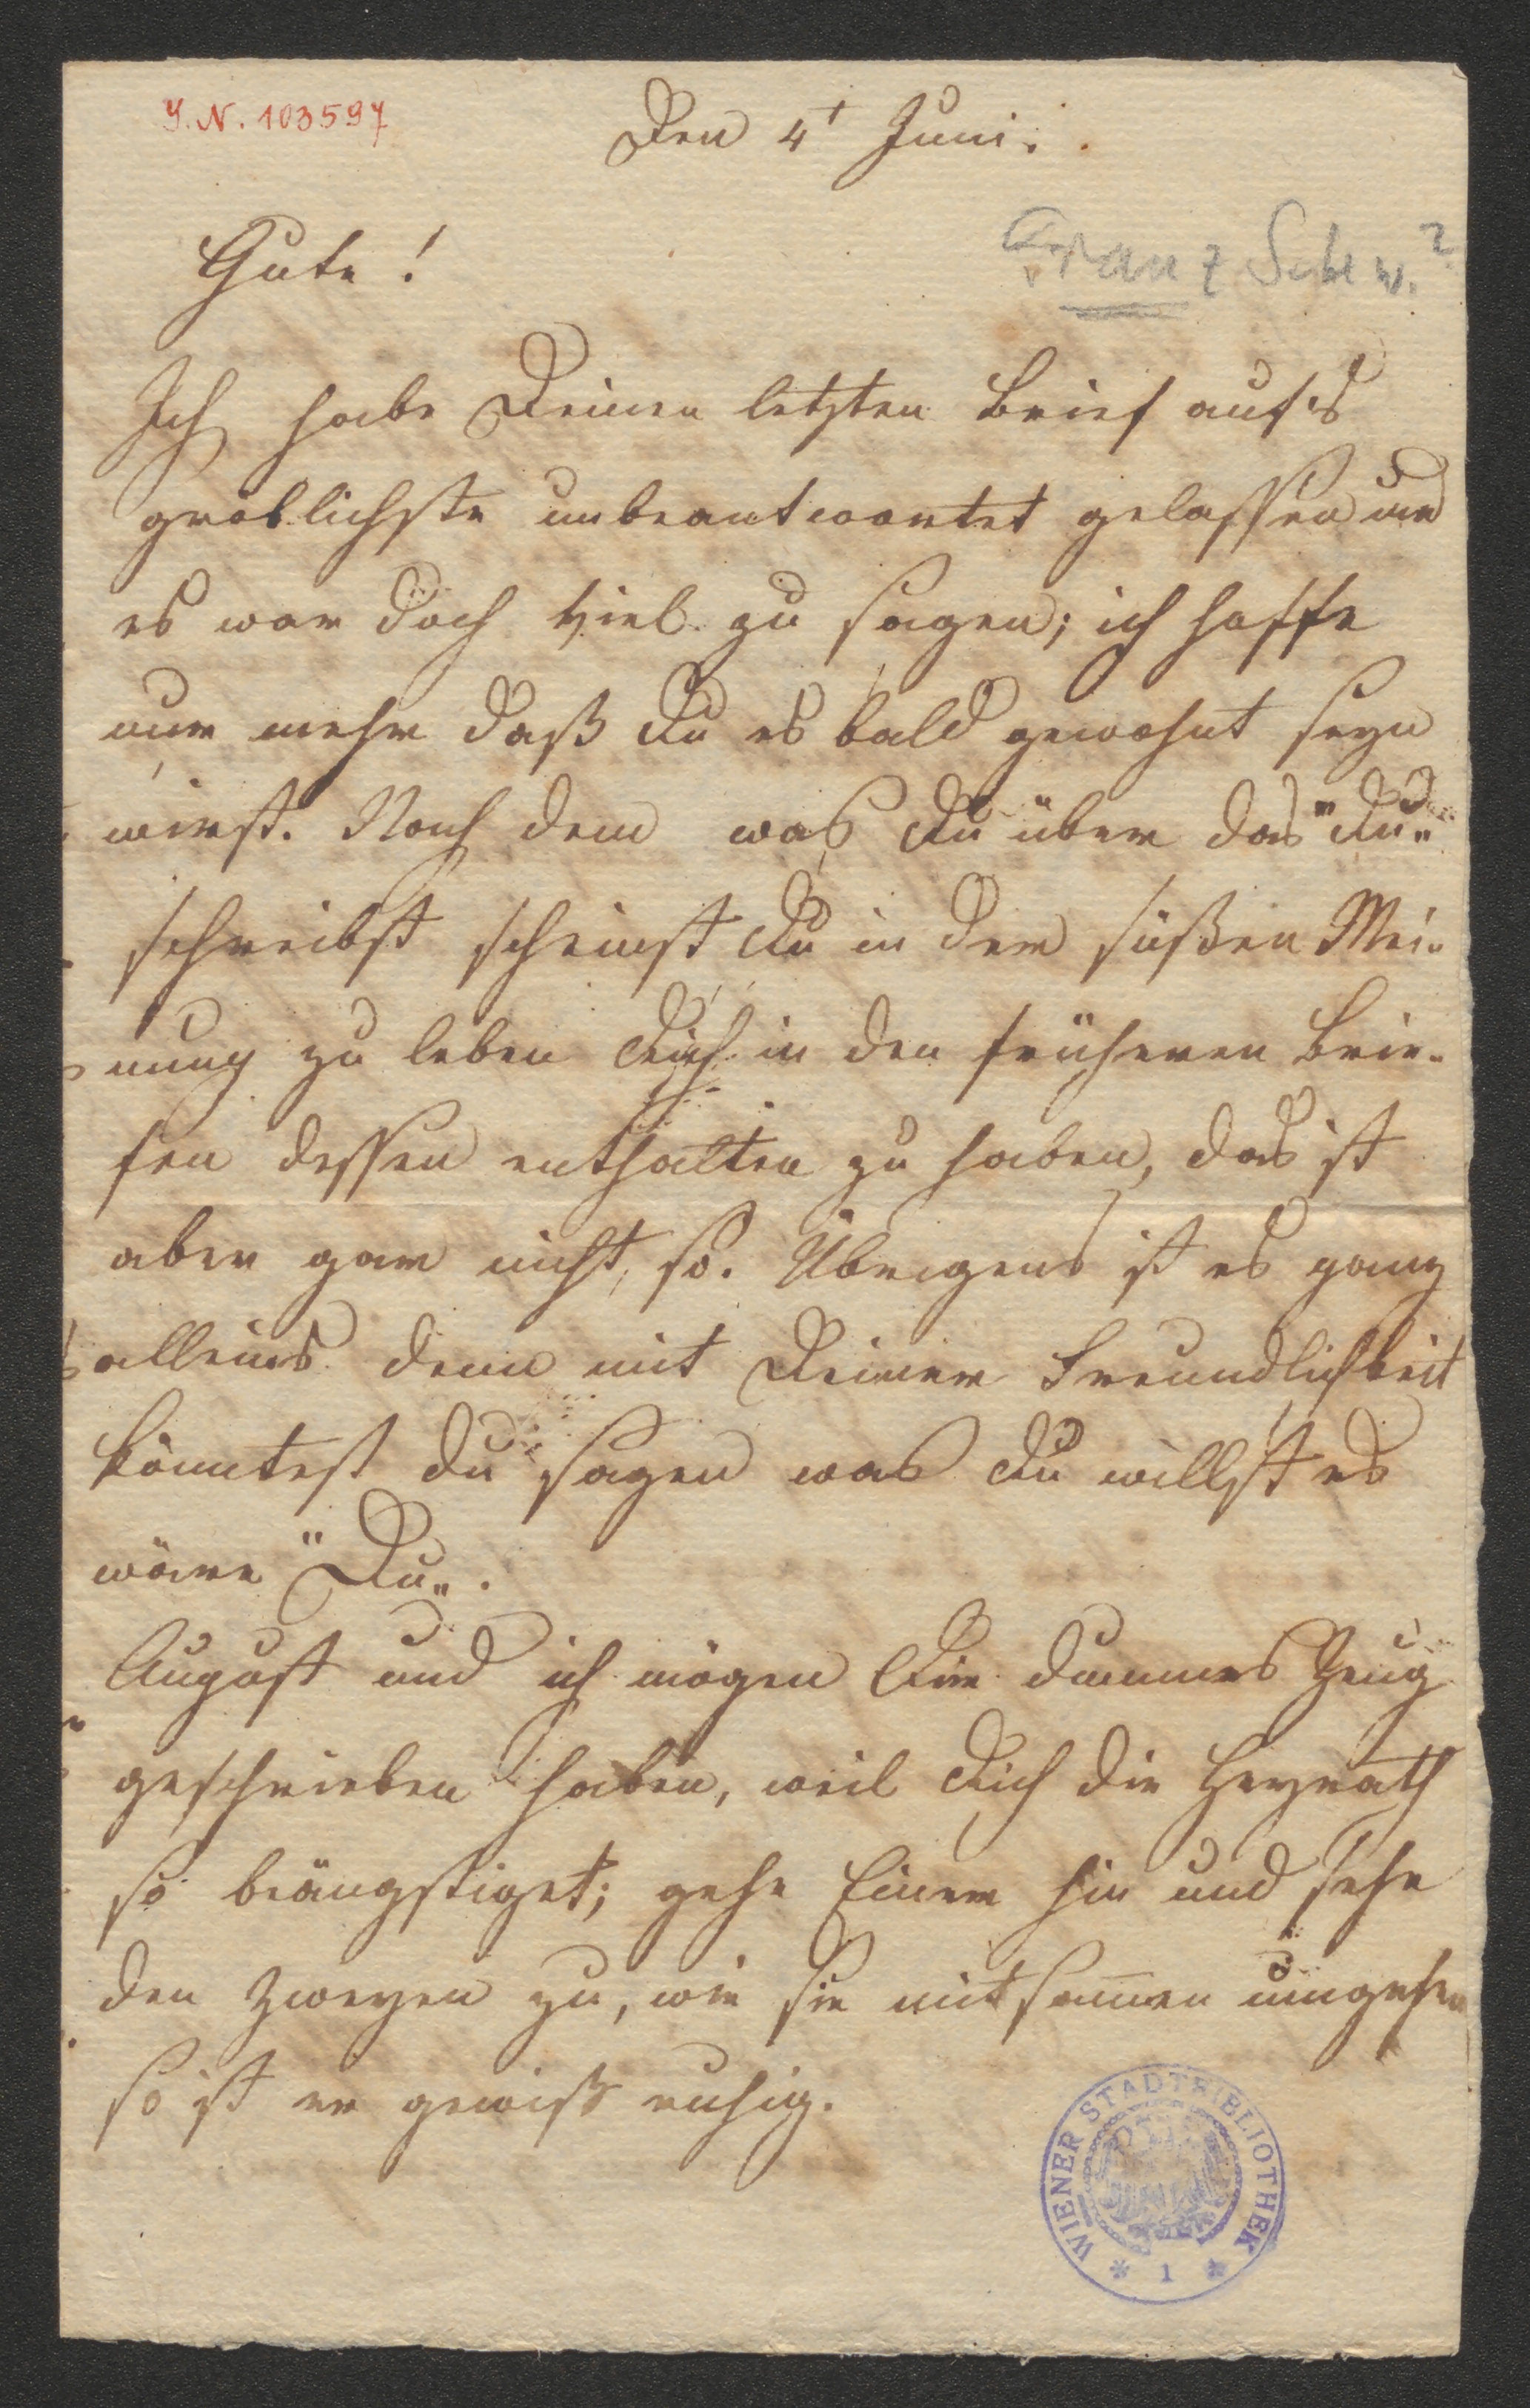 I.N. 103597
Den 4t Juni.
Franz Schw.?
Gute!
Ich habe Deinen letzten Brief auf's
gröblichste unbeantwortet gelassen und
es war doch viel zu sagen; ich hoffe
nur mehr daß Du es bald gewohnt seyn
wirst. Nach dem was Du über das "Du"
schreibst scheinst Du in der süßen Mei-
nung zu leben Dich in den früheren Brie-
fen dessen enthalten zu haben, das ist
aber gar nicht so. Übrigens ist es ganz
alleins denn mit Deiner Freundlichkeit
könntest du sagen was Du willst es
wäre "Du".
August und ich mögen Dir dummes Zeug
geschrieben haben, weil Dich die Heyrath
so beängstiget; gehe Einer hin und sehe
den Zweyen zu, wie sie mitsam̅en umgehen
so ist er gewiß ruhig.
WIENER STADTBIBLIOTHEK
* 1 *